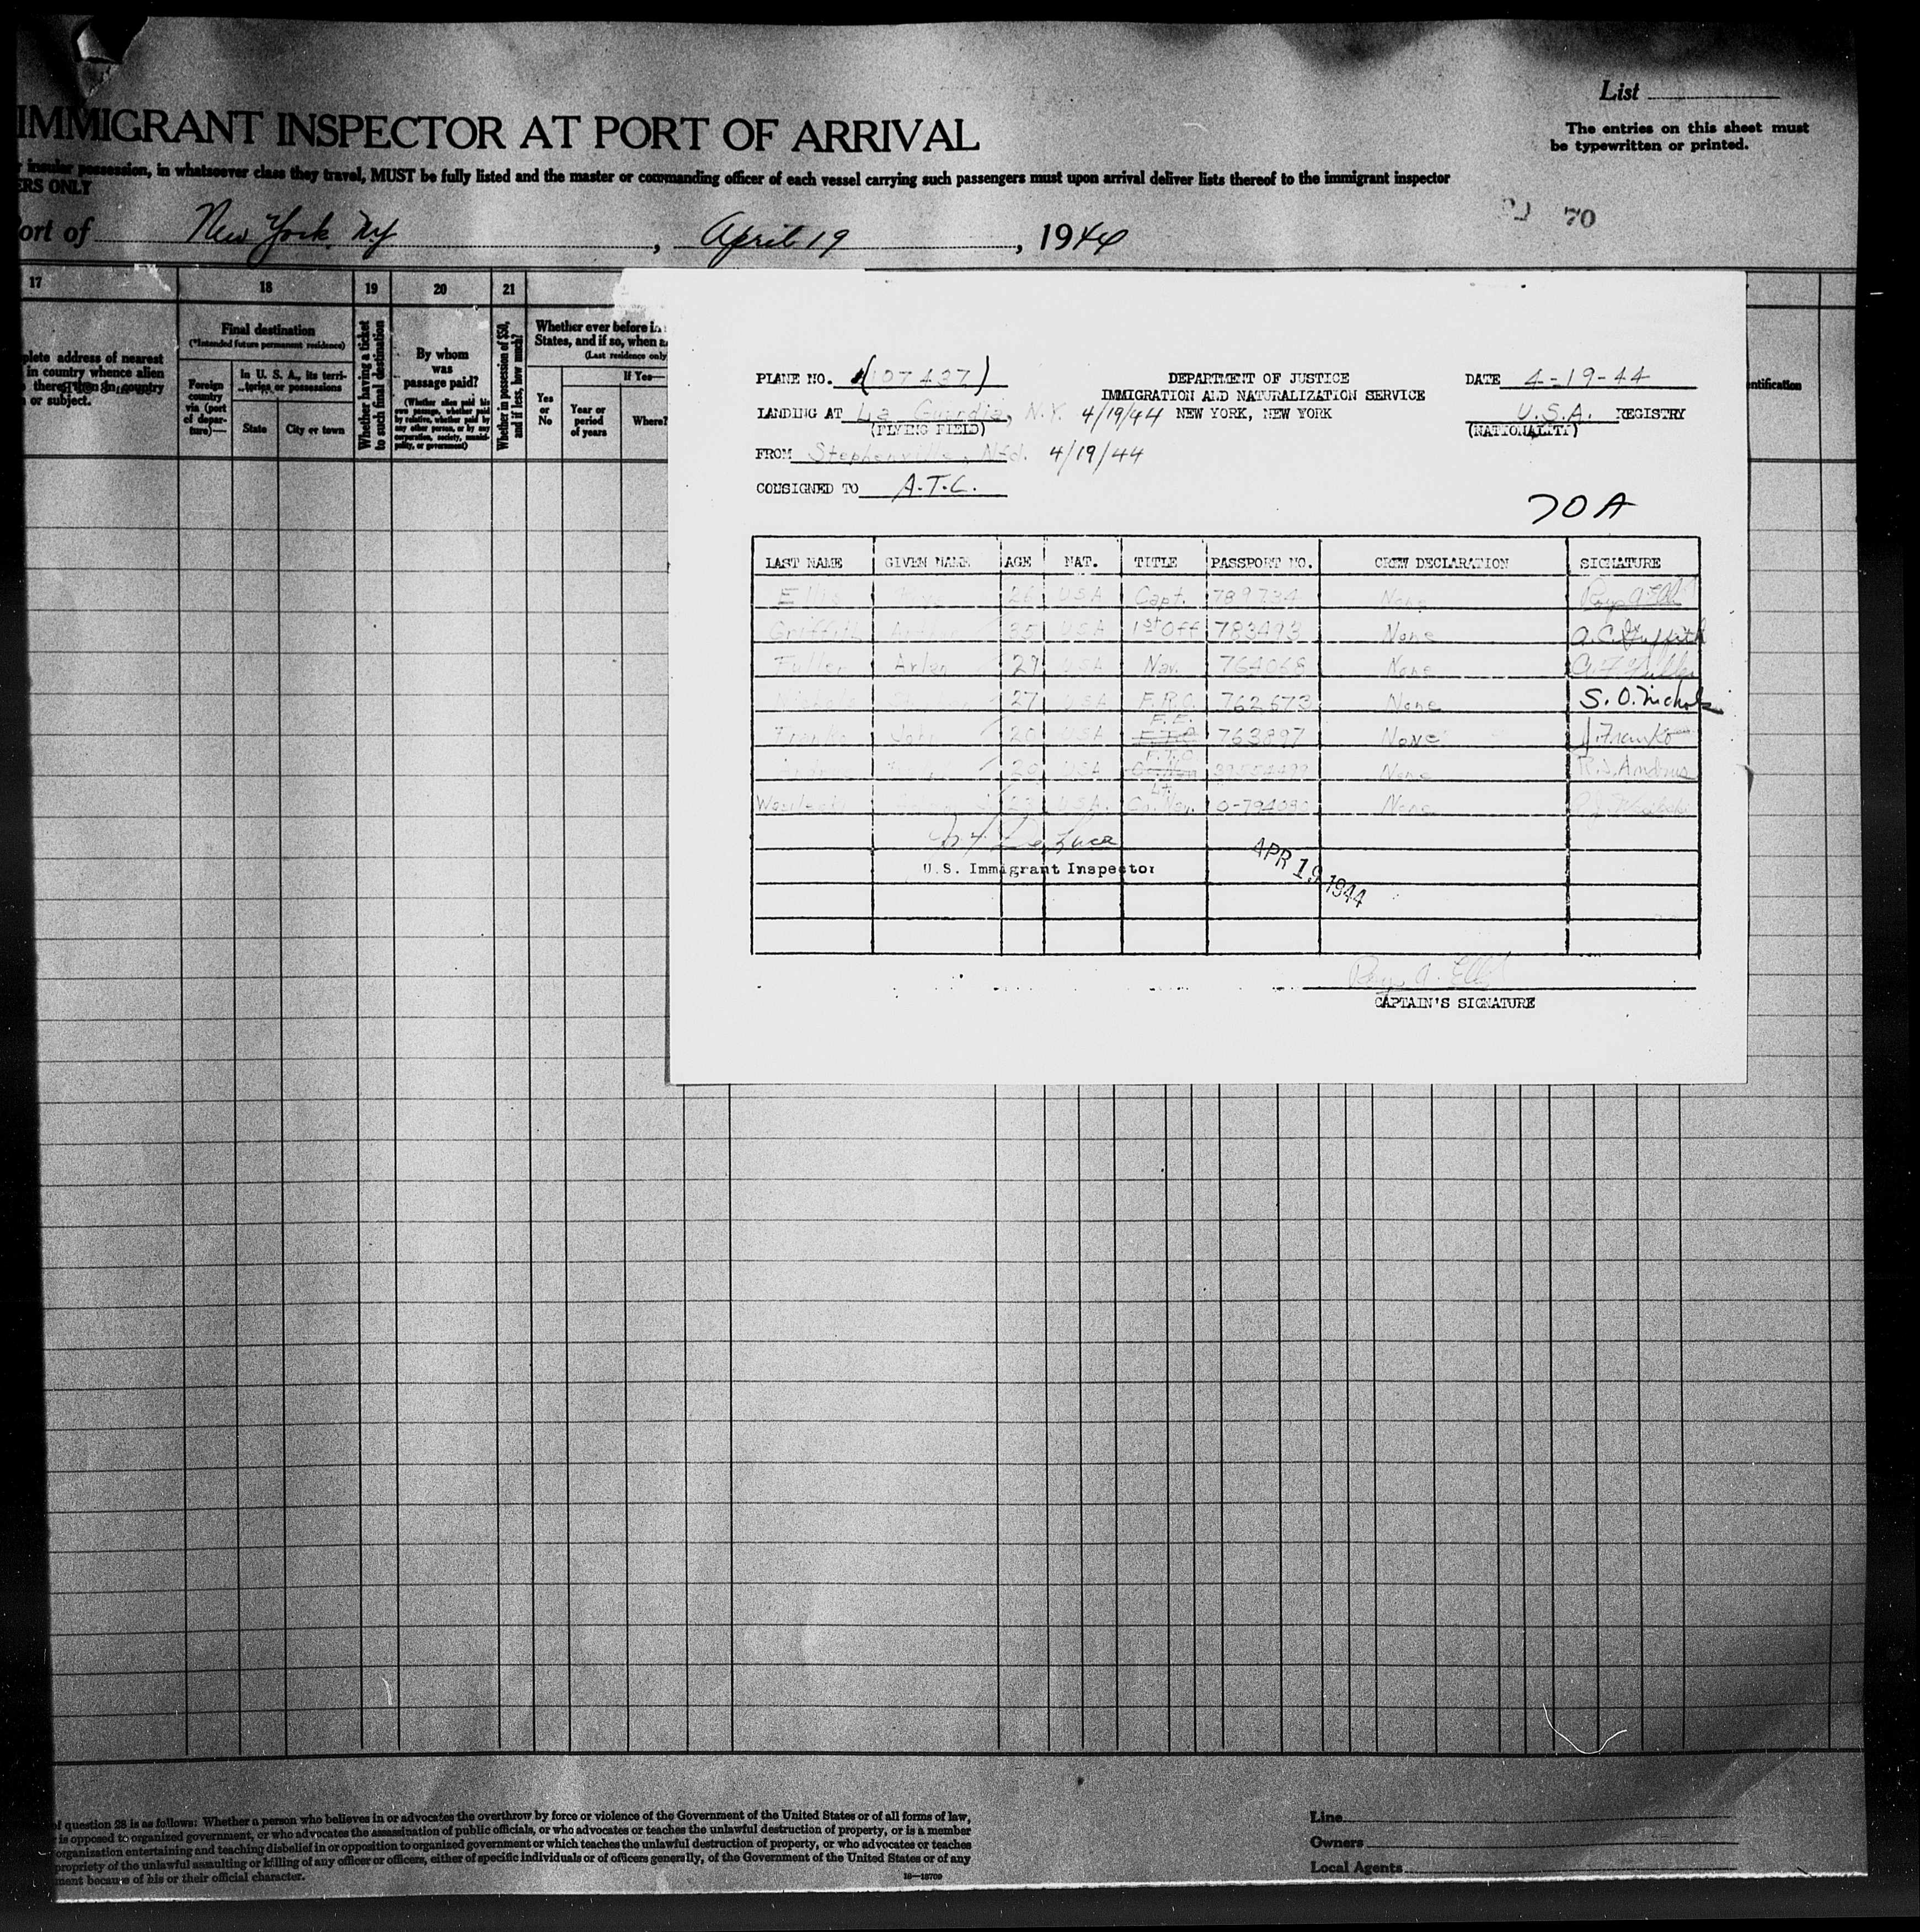 List
IMMIGRANT INSPECTOR AT PORT OF ARRIVAL
The entries on this sheet must
be typewritten or printed.
insular possession, in whatsoever class they travel, MUST be fully listed and the master or commanding officer of each vessel carrying such passengers must upon arrival deliver lists thereof to the immigrant inspector
ERS ONLY
ort of New York, NY, April 19, 1944
70
17 18 19 20 21
plete address of nearest
in country whence alien
or subject.
Final destination
(*Intended future permanent residence)
Foreign
country
via (port
of depar-
ture)—
In U. S. A., its terri-
tories or possessions
State
City or town
Whether having a ticket
to such final destination
By whom
was
passage paid?
(Whether alien paid his
own passage, whether paid
by relative, whether paid by
any other person, or by any
corporation, society, munici-
pality, or government)
Whether in possession of $50,
and if less, how much?
Whether ever before in
States, and if so, when a
(Last residence only
If Yes—
Yes
or
No
Year or
period
of years
Where?
ntification
PLANE NO. (107437)
DEPARTMENT OF JUSTICE
DATE 4-19-44
IMMIGRATION AND NATURALIZATION SERVICE
LANDING AT La Guardia, N.Y. 4/19/44 NEW YORK, NEW YORK
U.S.A. REGISTRY
(FLYING FIELD)
(NATIONALITY)
FROM Stephenville, Nfd. 4/19/44
CONSIGNED TO A.T.C.
70A
LAST NAME GIVEN NAME AGE NAT. TITLE PASSPORT NO. CREW DECLARATION SIGNATURE
Ellis 26 USA Capt. 789734 None Roys A. Ellis
Griffith 35 USA 1st Off 783493 None A. C. Griffith
Fuller Arlen 29 USA Nav. 764068 None A F Fuller
Nichols 27 USA F.R.O. 762673 None S. O. Nichols
Franko John 20 USA F.E. 763897 None J. Franko
20 USA F.T.O. None R. J. Andrus
23 U.S.A. Lt. Co. Nav. 0-794080 None
De Luca
U.S. Immigrant Inspector
APR 19 1944
Roys A. Ellis
CAPTAIN'S SIGNATURE
of question 28 is as follows: Whether a person who believes in or advocates the overthrow by force or violence of the Government of the United States or of all forms of law,
is opposed to organized government, or who advocates the assassination of public officials, or who advocates or teaches the unlawful destruction of property, or is a member
organization entertaining and teaching disbelief in or opposition to organized government or which teaches the unlawful destruction of property, or who advocates or teaches
propriety of the unlawful assaulting or killing of any officer or officers, either of specific individuals or of officers generally, of the Government of the United States or of any
ment because of his or their official character.
16—18709
Line
Owners
Local Agents